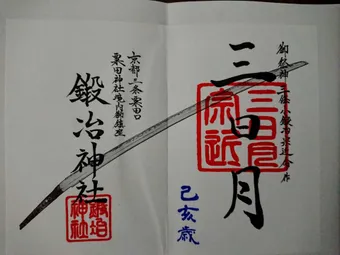 御祭神 三條小鍛冶宗近命 座
三日月
三日月
宗近
己亥歳
京都三条粟田口
粟田神社境内鎮座
鍛冶神社
鍛冶神社